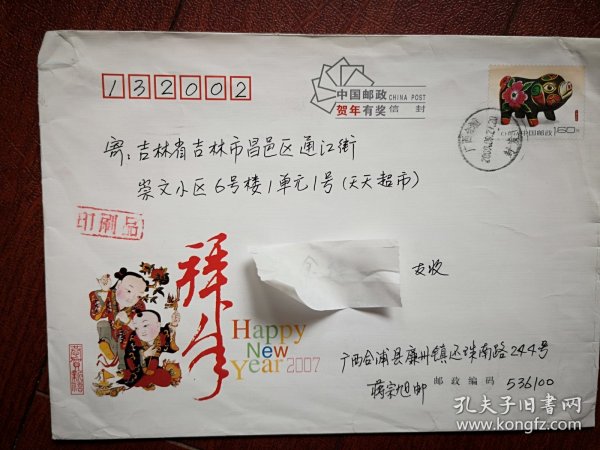 132002
中国邮政 CHINA POST
贺年有奖信封
中国邮政 160分
寄:吉林省吉林市昌邑区通江街
崇文小区6号楼1单元1号(天天超市)
印刷品
友收
拜年
Happy
New
Year 2007
广西合浦县廉州镇还珠南路244号
蒋宗旭邮 邮政编码 536100
孔夫子旧书网
www.kongfz.com